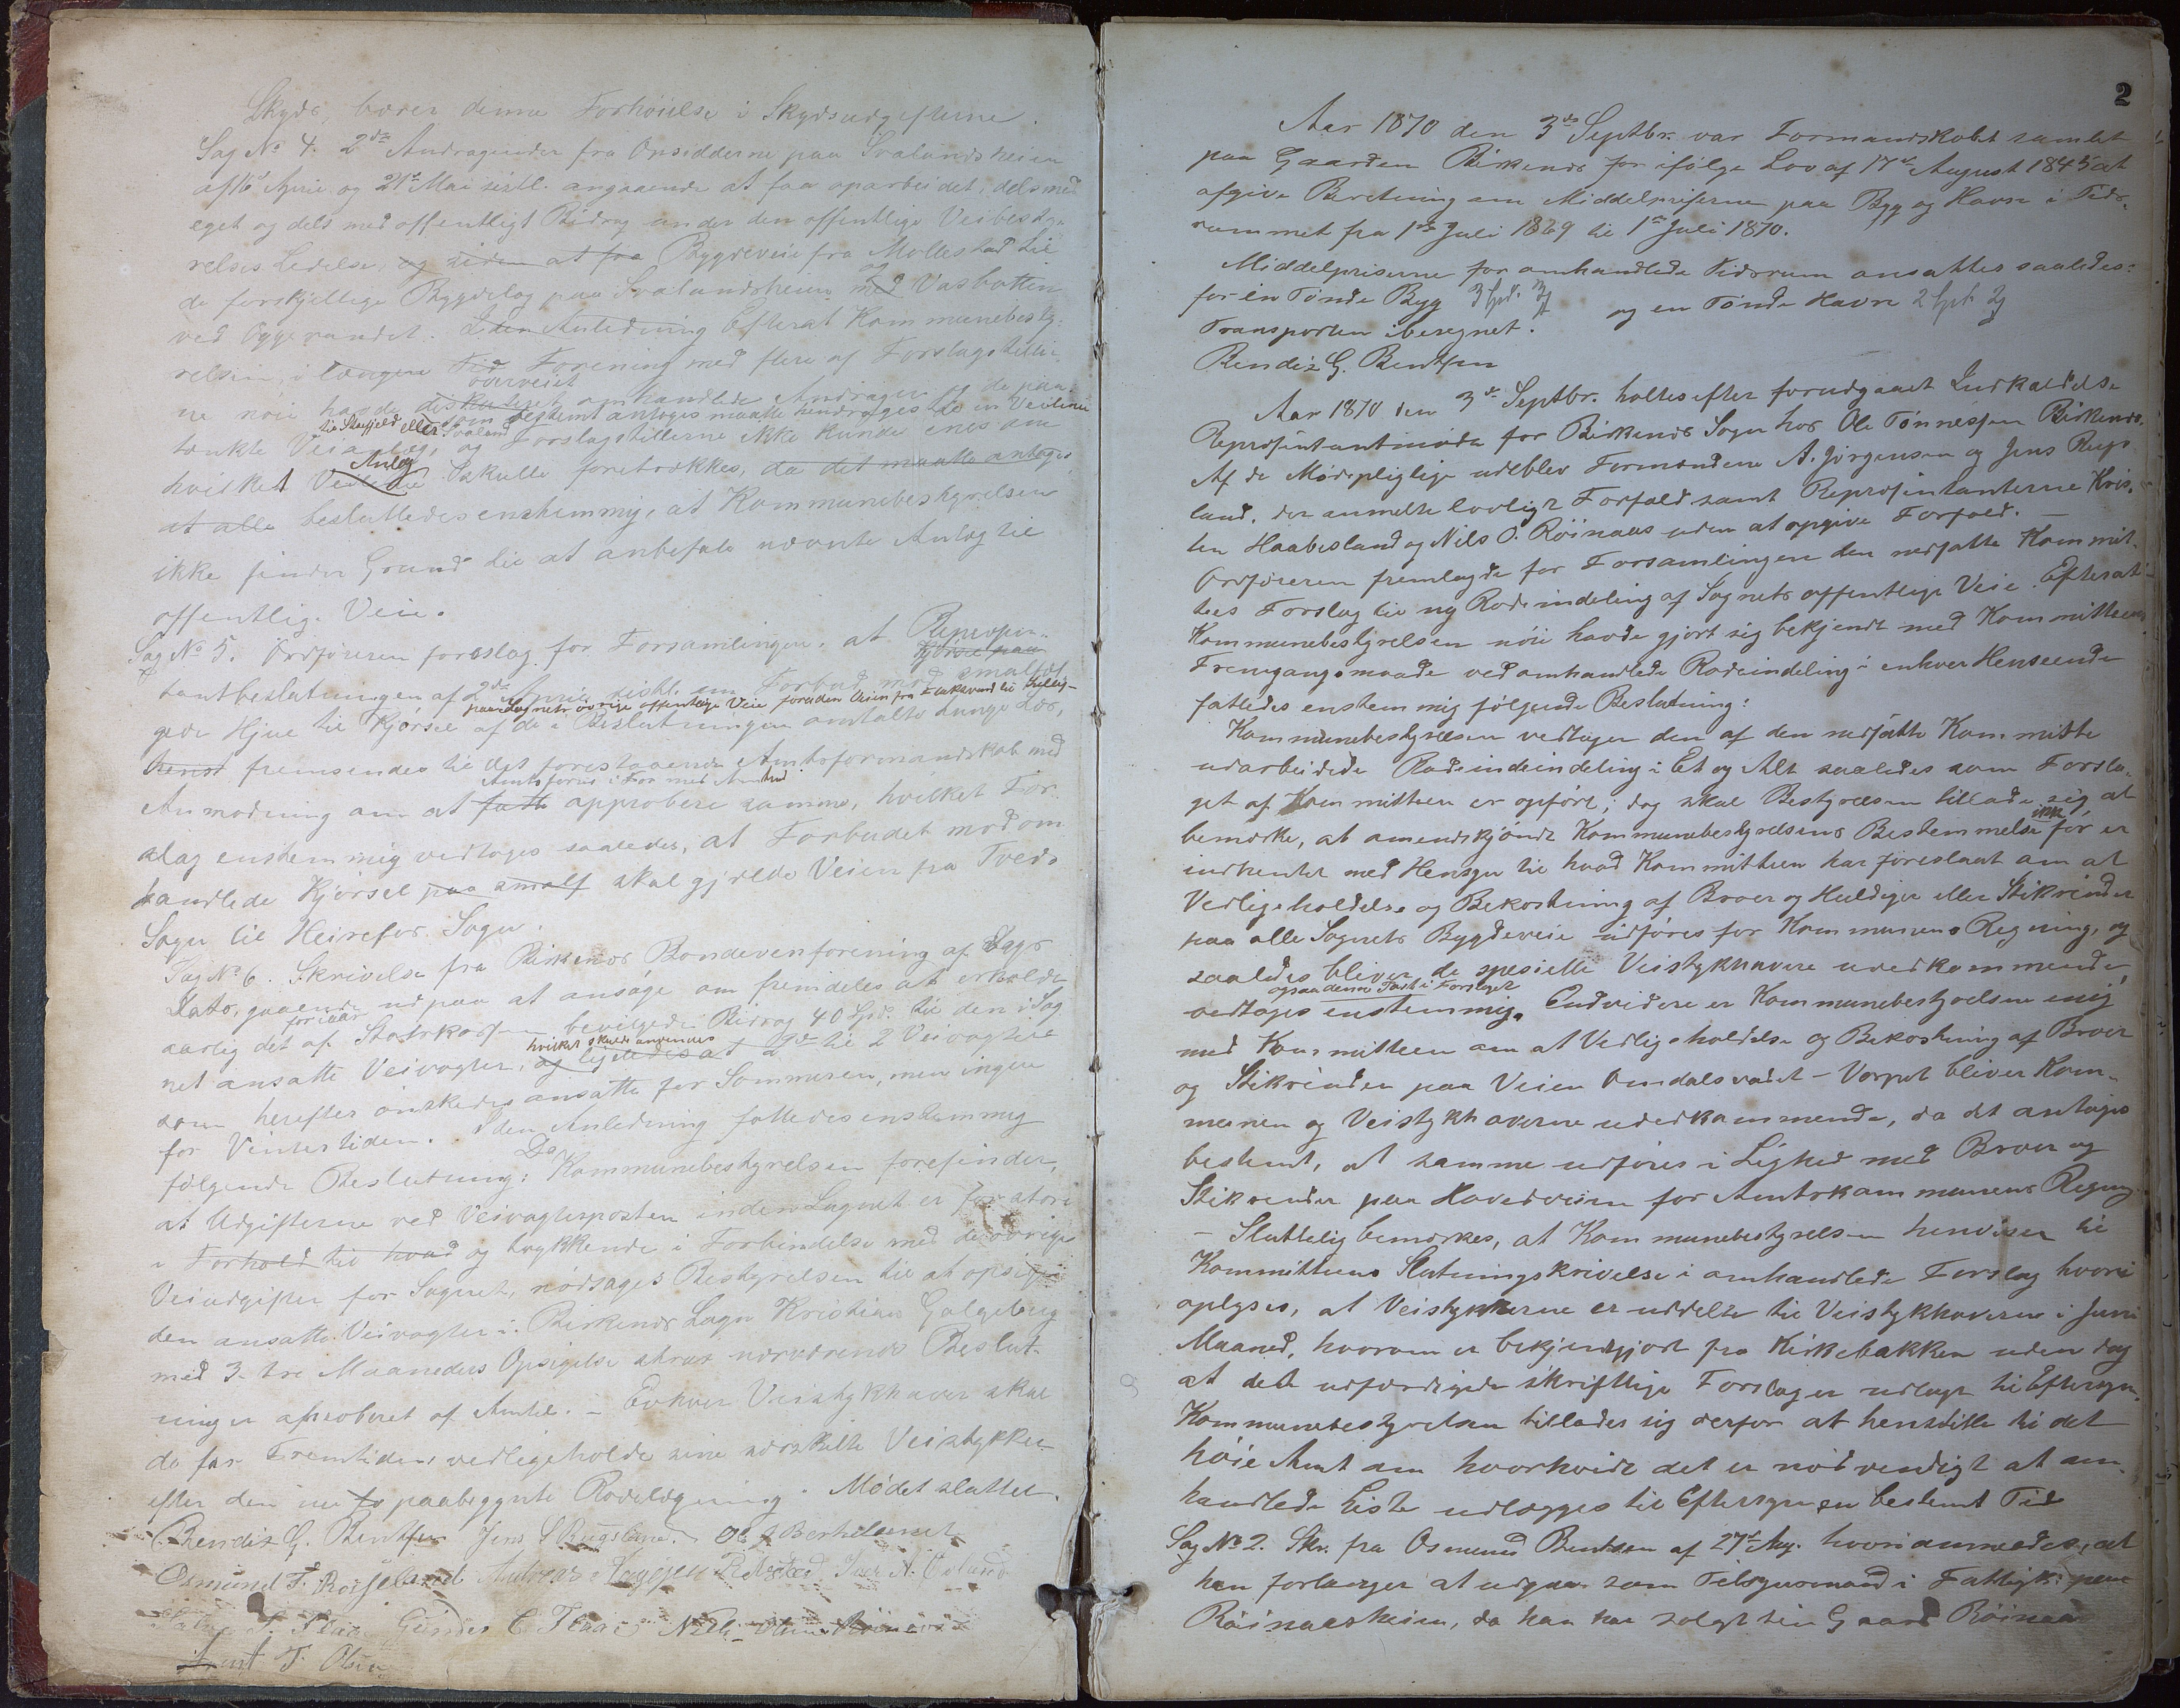 Skyds, bærer denne Forhøielse i Skydsudgifterne.
Sag No 4. 2de Andragender fra Opsidderne paa Svalandsheien
af 16 April og 21de Mai sidstl. angaaende at faa oparbeidet, dels med
eget og dels med offentligt Bidrag under den offentlige Veibesty-
relses Ledelse, og siden at fra Bygdeveie fra Mollestad til
de forskjellige Bygdelag paa Svalandsheien og med Vasbotten
ved Oggevandet. I den Anledning Efterat Kommunebesty-
relsen, i længere Tid Forening med flere af Forslagstiller-
ne nøie havde diskuteret overveiet omhandlede Andragen og de paa-
som bestemt antoges maatte hendrages til en Veilinie
tænkte Veianlæg, til Skeifjeld eller Svaland og Forslagstillerne ikke kunde enes om
hvilket Veilinie Anlæg skulde foretrækkes, da det maatte antages
at alle besluttedes enstemmig, at Kommunebestyrelsen
ikke finder Grund til at anbefale nævnte Anlæg til
offentlig Veie.
Sag No 5. Ordføreren foreslog for Forsamlingen, at Represen-
tantbeslutningen af 2den April sidstl. om Forbud mod smalfæl-
paa Sagnets øvrige offentlige Veie foruden Veien fra
gede Hjul til Kjørsel af de i Beslutningen omtalte tunge Læs,
henst fremsendes til det forestaaende Amtsformandskab med
Anmodning om at fatte approbere samme, hvilket For-
slag enstemmig vedtoges saaledes, at Forbudet mod om-
handlede Kjørsel paa smalf skal gjælde Veien fra Tveds
Sogn til Heirefos Sogn.
Sag No 6. Skrivelse fra Birkenes Bondevenforening af Dags
Dato, gaaende ud paa at ansøge om fremdeles at erholde
aarlig det af Statskassen for iaar bevilgede Bidrag 40 Spd. til den i Sog
net ansatte Veivogter, og ligeledes at hvilket skulde anvendes til 2 Veivogtere
som herefter ønskedes ansatte for Sommeren, men ingen
for Vintertiden. I den Anledning fattedes enstemmig
følgende Beslutning: Da Kommunebestyrelsen forefinder,
at Udgifterne ved Veivogterposten inden Sagnet er for store
i Forhold til hvad og trykkende i Forbindelse med de øvrige
Veiudgifter for Sagnet, nødsages Bestyrelsen til at opsige
den ansatte Veivogter i Birkenes Sogn Kristian Galgeberg
med 3- tre Maaneders Opsigelse strax nærværende Beslut-
ning er aproberet af Amtet. – Enhver Veistykhaver skal
da for Fremtiden vedligeholde sine særskilte Veistykker
efter den nu fo paabegynte Rodelægning. Mødet sluttet.
Bendix G. Bentsen Jens S Rugsland. Ole J Berhelsmit
Osmund T. Røiseland Andreas
Gunder C Flaa Nils Olsen Røinaas
T. Olsen
2
Aar 1870 den 3de Septbr. var Formandskabet samlet
paa Gaarden Birkenes for ifølge Lov af 17de August 1845 at
afgive Beretning om Middelpriserne paa Byg og Havre i Tids-
rummet fra 1ste Juli 1869 til 1ste Juli 1870.
Middelpriserne for omhandlede Tidsrum ansattes saaledes:
for en Tønde Byg 3 Spd. 3 og en Tønde Havre 2 Spd. 2
Transporten iberegnet.
Bendix G. Bentsen
Aar 1870 den 3de Septbr. holtes efter forudgaaet Indkaldelse
Representantmøde for Birkenes Sogn hos Ole Tønnessen Birkenes.
Af de Mødepligtige udeblev Formændene A. Jørgensen og Jens Rugs-
land, der anmelte lovligt Forfald samt Representanterne Kris-
ten Haabesland og Nils O. Røinaas uden at opgive Forfald. –
Ordføreren fremlagde for Forsamlingen den nedsatte Kommit-
tees Forslag til ny Rodeinddeling af Sognets offentlige Veie. Efterat
Kommunebestyrelsen nøie havde gjort sig bekjendt med Kommitteens
Fremgangsmaade ved omhandlede Rodeinddeling i enhver Henseende
fattedes enstemmig følgende Beslutning:
Kommunebestyrelsen vedtager den af den nedsatte Kommitte
udarbeidede Rodeindeindeling i Et og Alt saaledes som Forsla-
get af Kommitteen er opført; dog skal Bestyrelsen tillade sig, at
bemærke, at omendskjøndt Kommunebestyrelsens Bestemmelse ikke før er
indhentet med Hensyn til hvad Kommitteen har foreslaaet om at
Vedligeholdelse og Bekostning af Broer og Huldiger eller Stikrender
paa alle Sognets Bygdeveie udføres for Kommunens Regning, og
saaledes bliver de spesielle Veistykhavere uvedkommende,
vedtages ogsaa denne Post i Forslaget enstemmig. Endvidere er Kommunebestyrelsen enig
med Kommitteen om at Vedligeholdelse og Bekostning af Broer
og Stikrender paa Veien Omdalsvadet – Vorpet bliver Kom-
munen og Veistykhaverne uvedkommende, da det antages
bestemt, at samme udføres i Lighed med Broer og
Stikrender paa Hovedveien for Amtskommunens Regning
– Sluttelig bemærkes, at Kommunebestyrelsen henviser til
Kommitteens Slutningskrivelse i omhandlede Forslag hvori
oplyses, at Veistykkerne er uddelte til Veistykhaverne i Juni
Maaned, hvorom er bekjendtgjort fra Kirkebakken uden dog
at det udfærdigede skriftlige Forslag er udlagt til Eftersyn.
Kommunebestyrelsen tillader sig derfor at henstille til det
høie Amt om hvorhvidt det er nødvendigt at om-
handlede Liste udlægges til Eftersyn en bestemt Tid
Sag No 2. Skr. fra Osmund Bentsen af 27de Aug. hvori anmeldes, at
han forlanger at udgaa som Tilsynsmand i Fattigk. paa
Røinaasheien, da han har solgt sin Gaard Røinaas